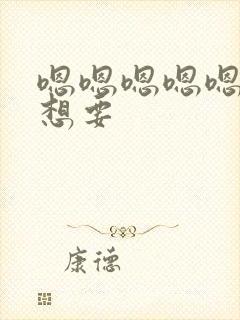 嗯嗯嗯嗯嗯
想要
康德